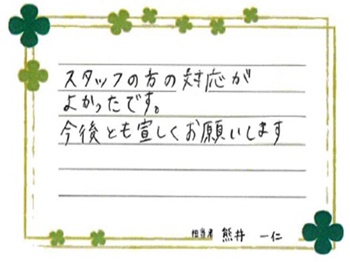 スタッフの方の対応が
よかったです。
今後とも宜しくお願いします
担当者 熊井 一仁